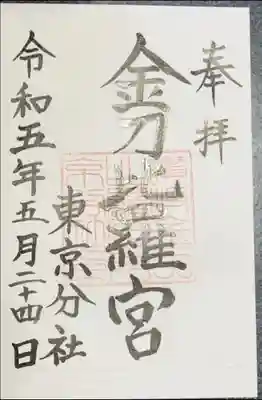 奉拝
金刀比羅宮
東京分社
令和五年五月二十四日